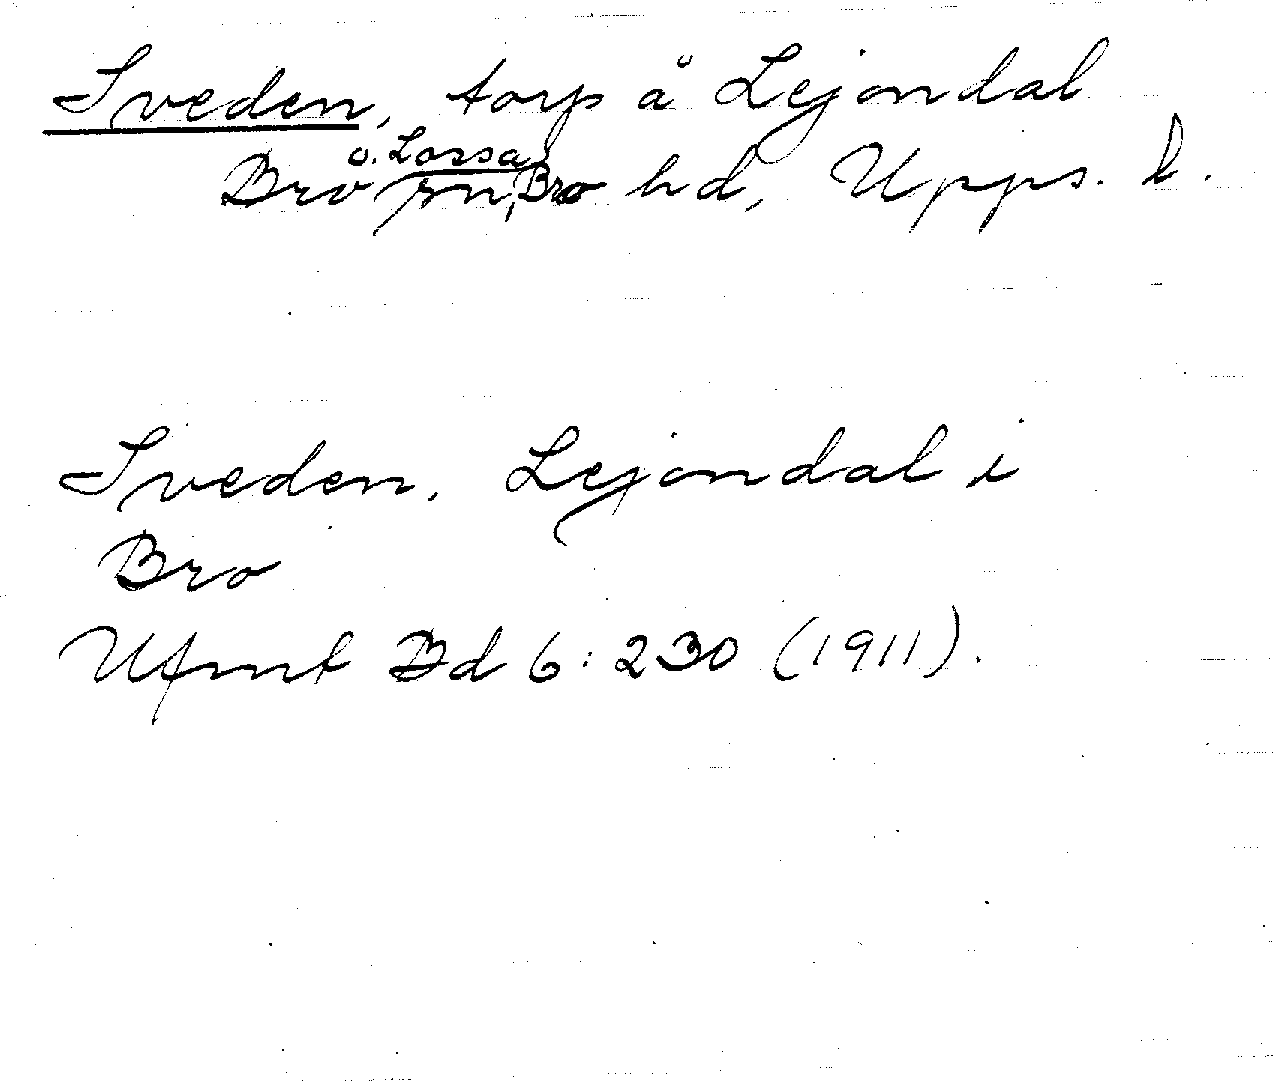 Sveden, torp å Lejondal
Bro o. Lossa sn, Bro hd, Upps. l.
Sveden. Lejondal i
Bro
Ufmt Bd 6:230 (1911).